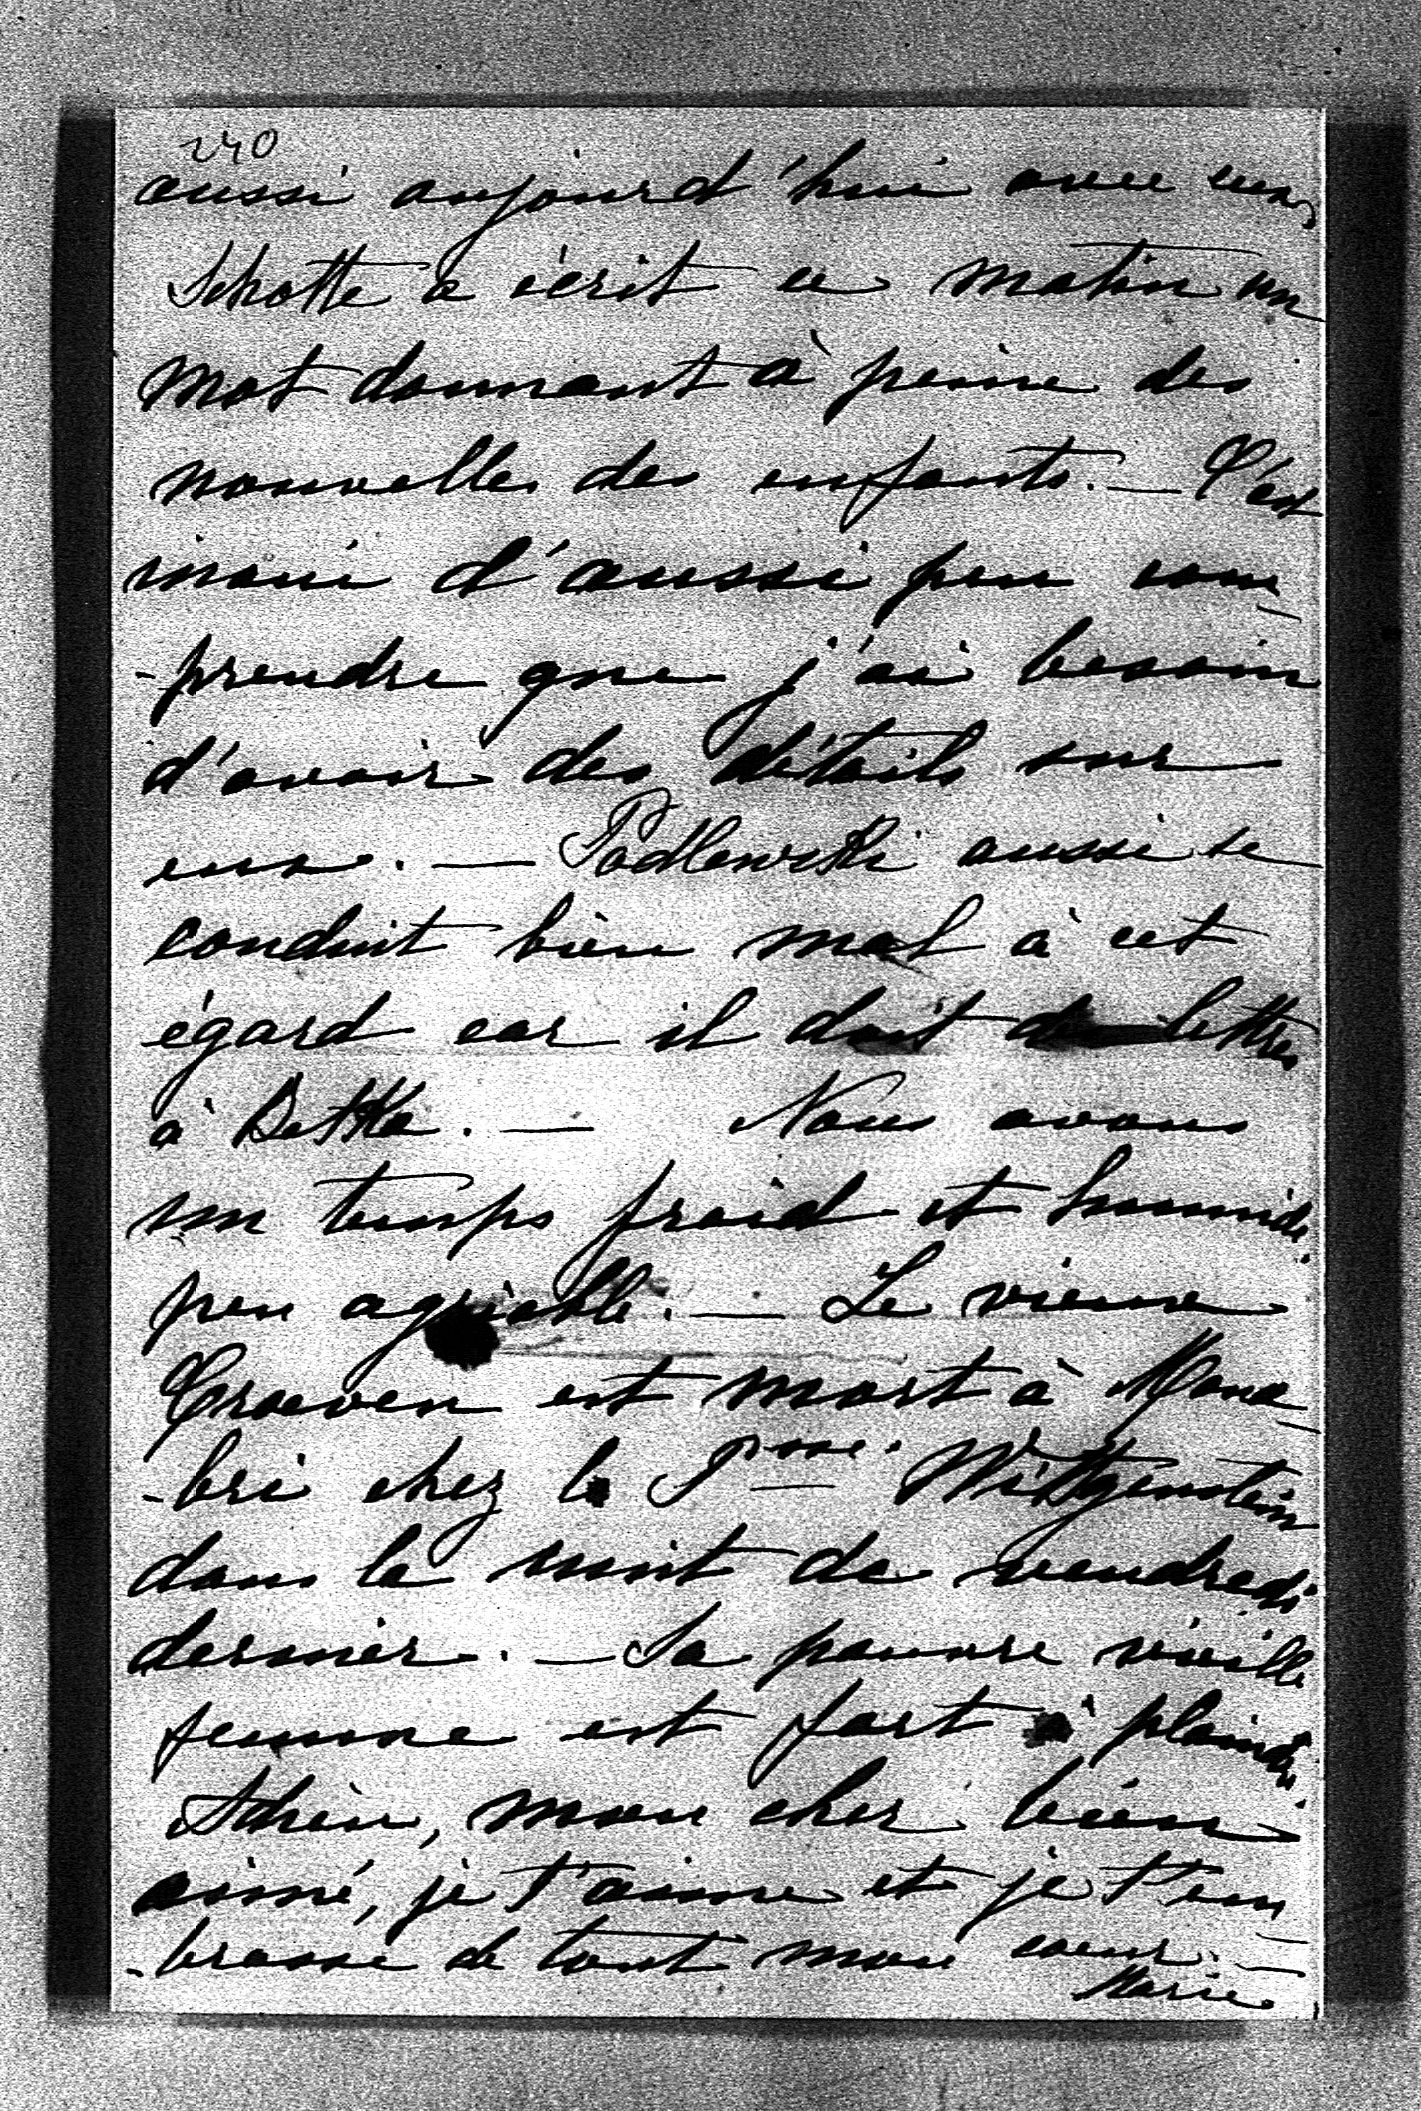 240
aussi aujourd'hui avec eux,
Schotte a écrit ce matin un
mot donnant à peine des
nouvelles des enfants. — C'est
inoui d'aussi peu com
-prendre que j'ai besoin
d'avoir des détails sur
eux. — Podlewski aussi se
conduit bien mal à cet
égard car il doit lettres
à Betka. — Nous avons
un temps froid et humide
peu agréable. — Le vieux
Craeven est mort à Mona
-bri chez la Psse. Wittgenstein
dans la nuit de vendredi
dernier. — Sa pauvre vieille
femme est fort à plaindre.
Adieu, mon cher bien
aimé, je t'aime et je t'em
-brasse de tout mon coeur. —
Marie.